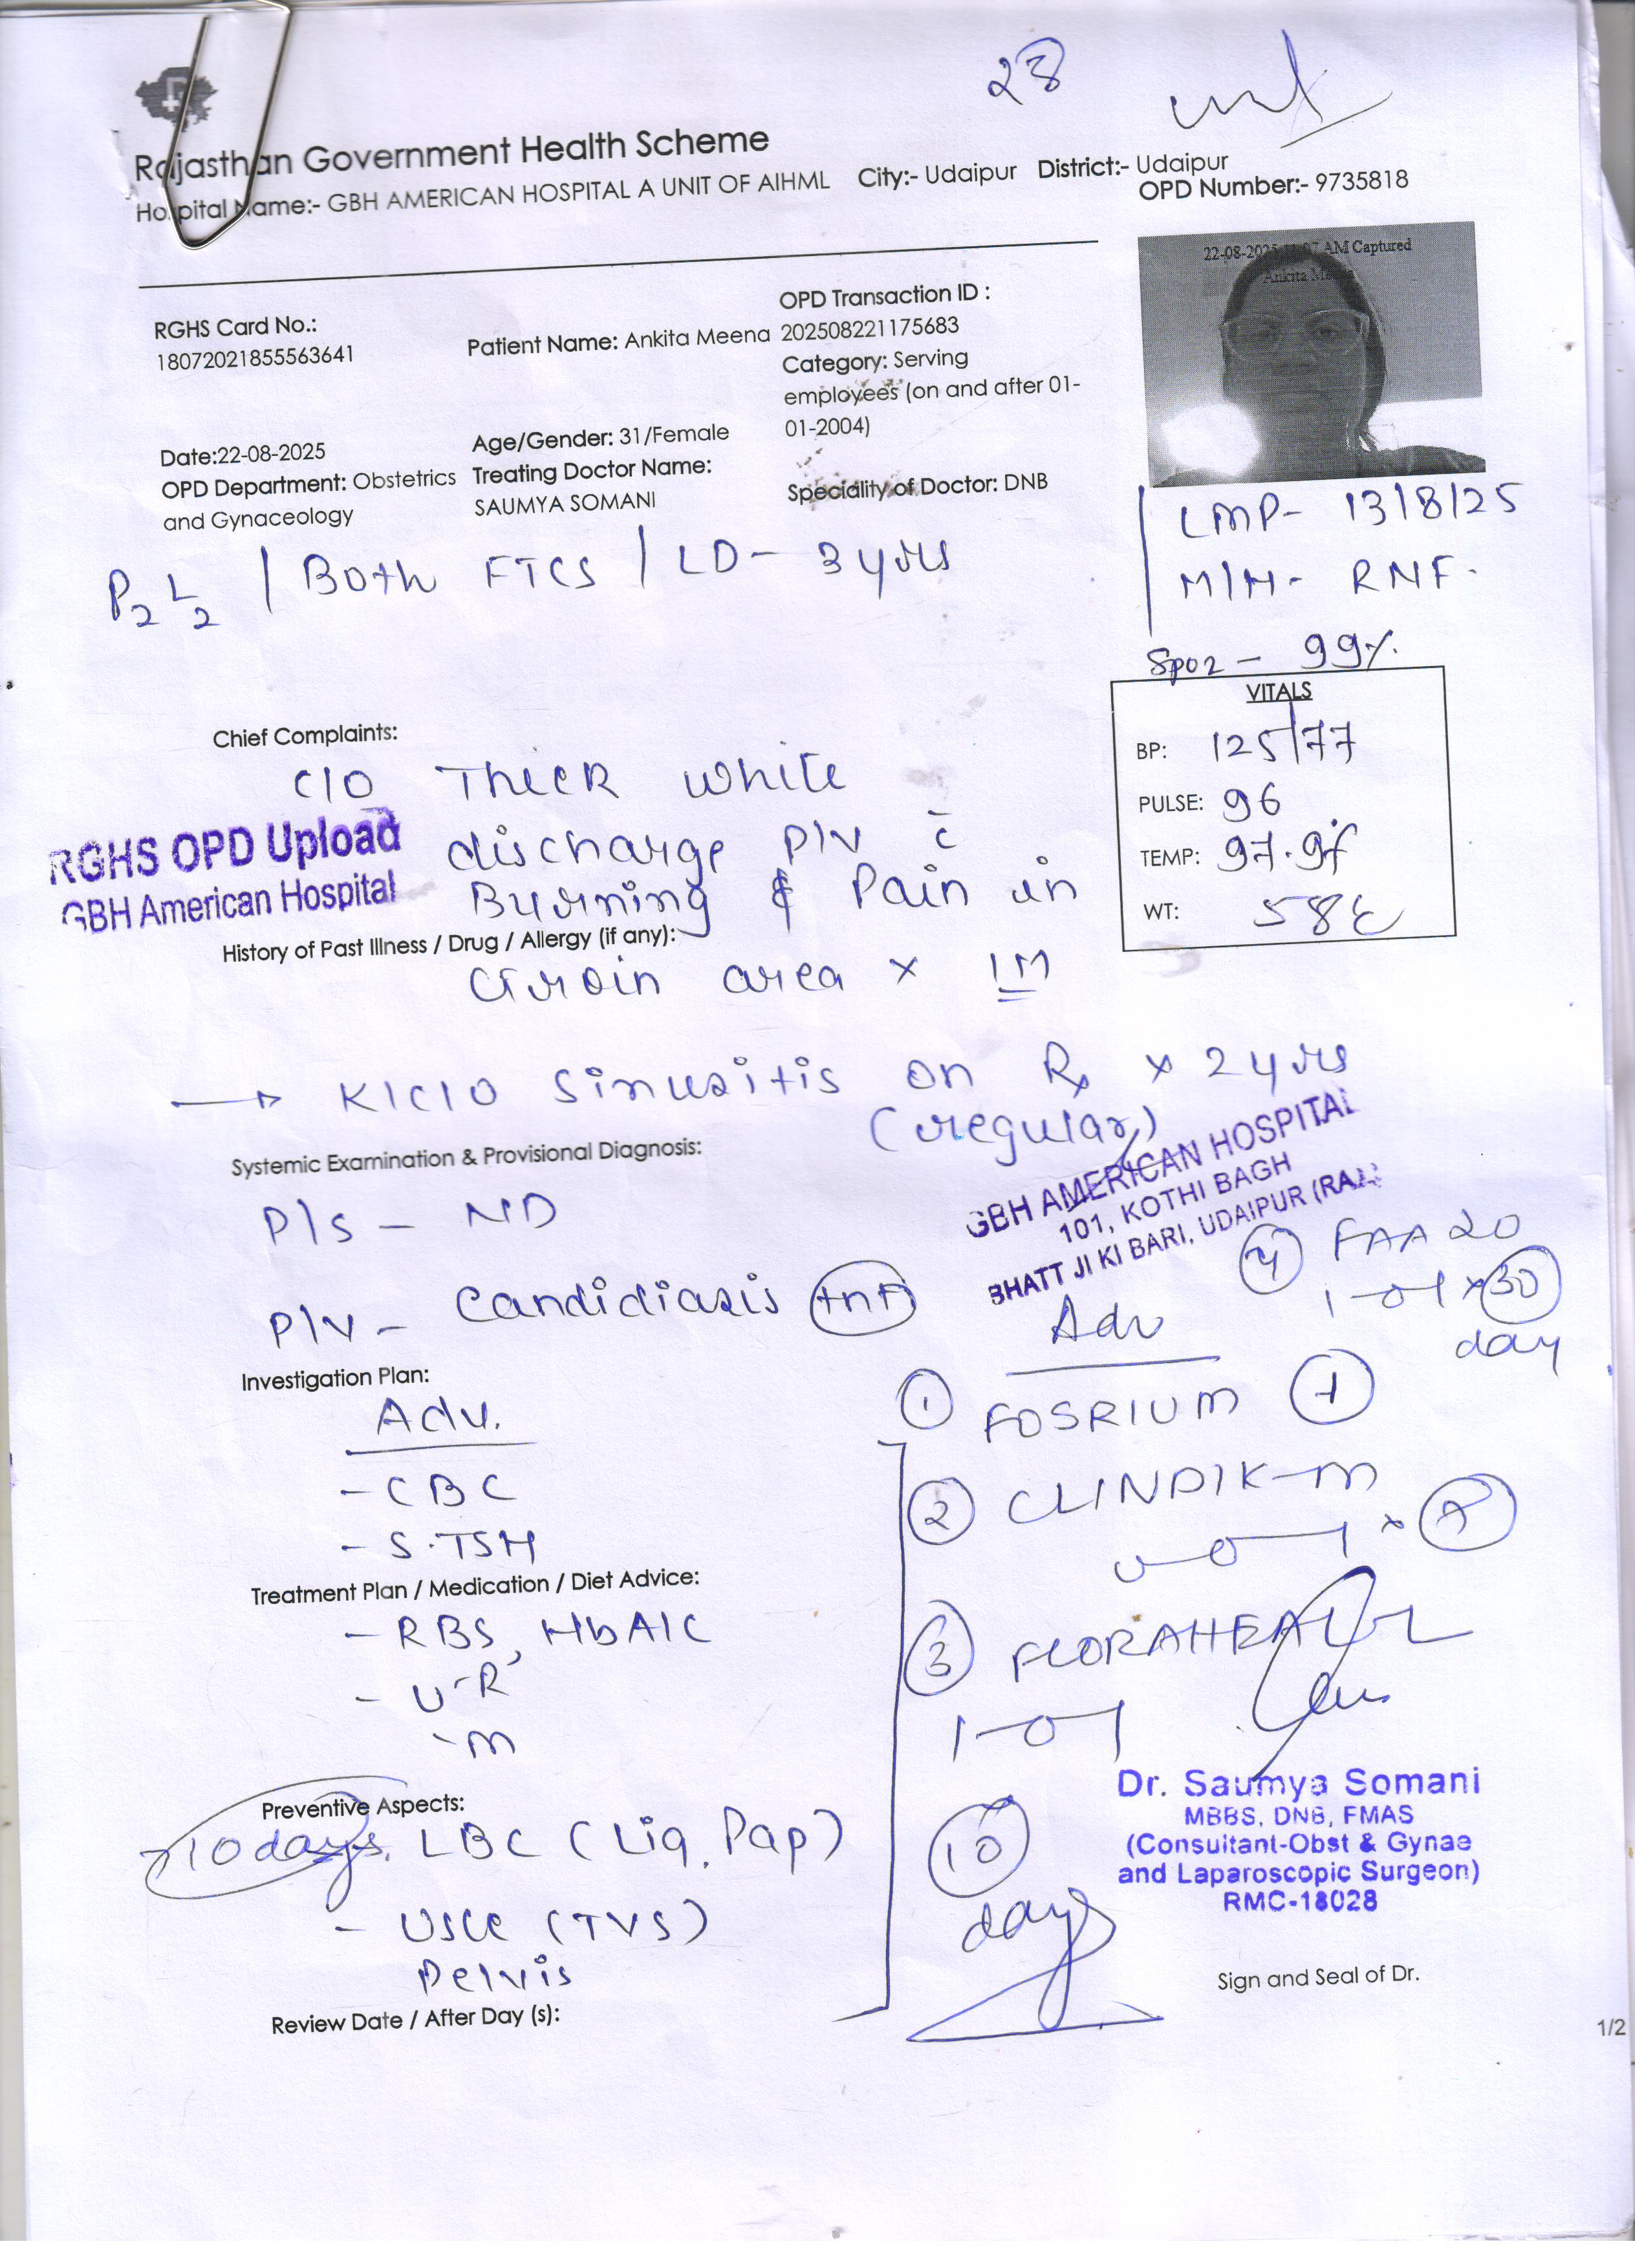 28
Rajasthan Government Health Scheme
Hospital Name:- GBH AMERICAN HOSPITAL A UNIT OF AIHML City:- Udaipur District:- Udaipur
OPD Number:- 9735818
22-08-2025 11:07 AM Captured
Ankita Meena
RGHS Card No.:
18072021855563641
Patient Name: Ankita Meena
OPD Transaction ID :
202508221175683
Category: Serving
employees (on and after 01-
01-2004)
Date:22-08-2025
Age/Gender: 31/Female
OPD Department: Obstetrics
and Gynaceology
Treating Doctor Name:
SAUMYA SOMANI
Speciality of Doctor: DNB
LMP- 13/8/25
M/H- RNF.
P2 L2 / Both FTCS / LD- 3 yrs
SpO2 - 99%
VITALS
BP: 125/77
PULSE: 96
TEMP: 97.9°f
WT: 58
Chief Complaints:
C/O Thick white
discharge P/V c̄
Burning & Pain in
Groin area x 1M
RGHS OPD Upload
GBH American Hospital
History of Past Illness / Drug / Allergy (if any):
→ K/C/O Sinusitis on Rx x 2 yrs
(regular)
GBH AMERICAN HOSPITAL
101, KOTHI BAGH
BHATT JI KI BARI, UDAIPUR (RAJ.)
Systemic Examination & Provisional Diagnosis:
P/s - ND
P/v - Candidiasis
Investigation Plan:
Adv.
- CBC
- S.TSH
Treatment Plan / Medication / Diet Advice:
- RBS, HbA1C
- U-R
-m
Preventive Aspects:
10 days. LBC (Liq. Pap)
- USG (TVS)
Pelvis
Review Date / After Day (s):
Adv
① FOSRIUM ①
② CLINDIK-m
③ FLORAHEAL
1-0-1
10
days
④ FAA 20
1-0-1 x 30
day
Dr. Saumya Somani
MBBS, DNB, FMAS
(Consultant-Obst & Gynae
and Laparoscopic Surgeon)
RMC-18028
Sign and Seal of Dr.
1/2